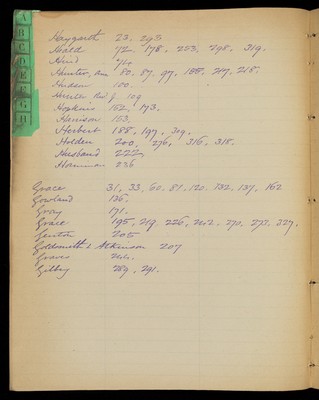 A
B
C
D
E
F
G
H
Haygarth 23, 293
Heald 72, 178, 253, 298, 319.
Hind 74
Hunter, 80, 87, 97, 188, 217, 218,
Hudson 100.
109
Hopkins 152, 173.
Harrison 153.
Herbert 188, 197, 309.
Holden 200, 276, 316, 318.
Husband 222,
Horniman 236
Grace 31, 33, 60, 81, 120, 132, 137, 162
Gowland 126.
Gray 171.
Grace 195, 219, 226, 262, 270, 273, 327.
Genton 205
Goldsmith & Atkinson 207
Graves
Gilbey 289, 291.